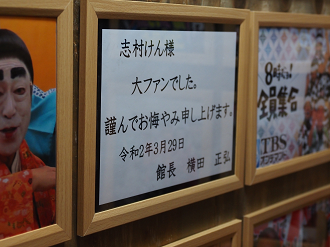 志村けん様
大ファンでした。
謹んでお悔やみ申し上げます。
令和2年3月29日
館長 横田 正弘
8時だョ!
全員集合
TBS